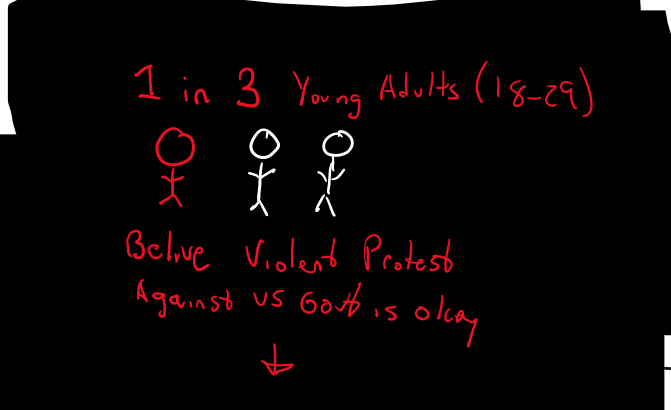 1 in 3 Young Adults (18-29)
Belive Violent Protest
Against US Govt is okay